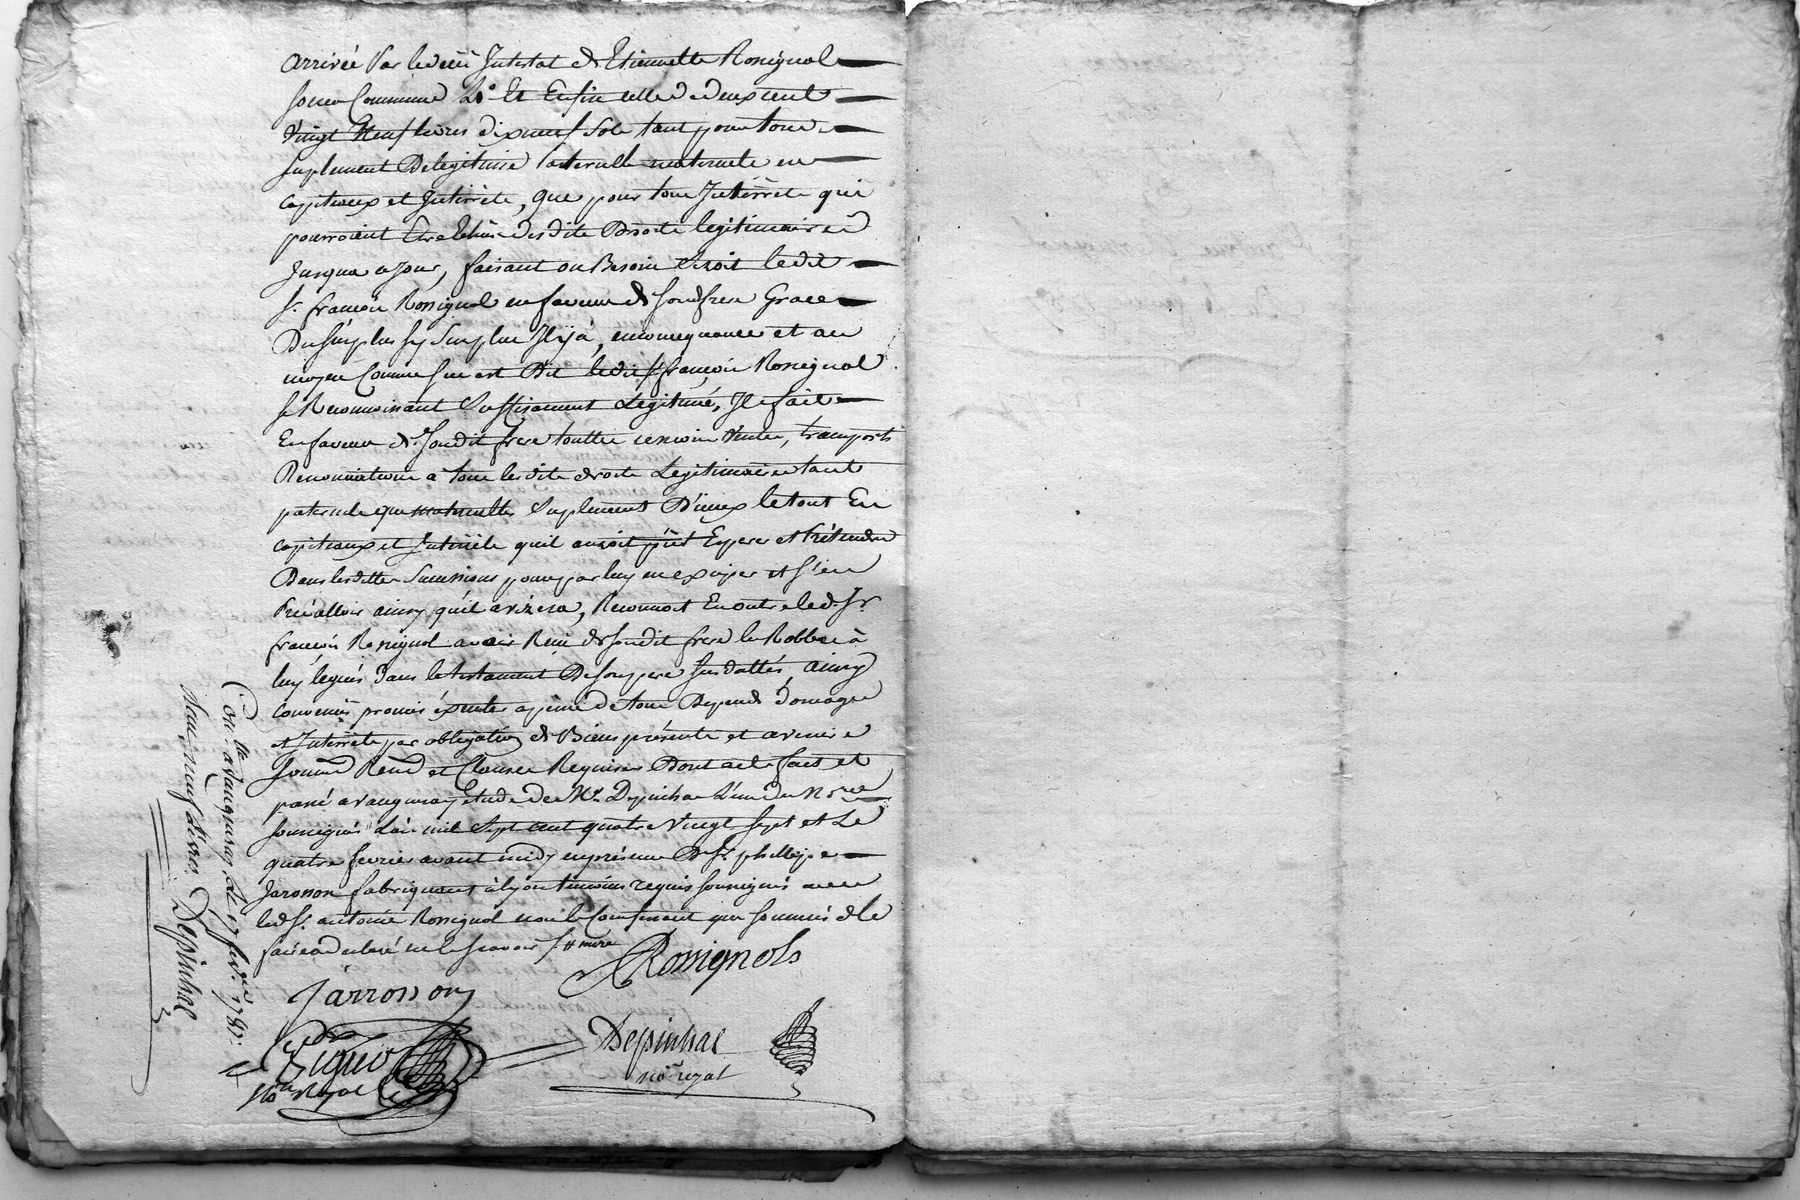 arrivée Par le deces Intestat de Etiennette Rosignol
soeur Commune 20° Et Enfin celle de deux cent
vingt Neuf livres dix neuf Sols tant pour tous
suplement De legitime paternelle maternelle en
capitaux et Intérrêts, que pour tous Intérrêts qui
pourroient Etre échus desdits Droits légitimaires
Jusqua ce Jour, faisant ou Besoin Seroit ledit
Sr. françois Rosignol en faveur de Son dit frere Grace
Du Surplus Sy Surplus Il y à, en consequence et au
moyen Comme Sus est Dit ledit Sr françois Rosignol
Se Reconnoissant Suffisament Légitimé, Il fait
En faveur de Son dit frere touttes cession Ventes, transports
Renonciations à tous lesdits droits Légitimaires tant
paternels que maternelles Suplement D'iceux le tout En
capitaux et Intérrêts quil auroit Esperer et Prétendre
Dans lesdittes Successions pour par luy en exiger et S'en
Prévalloir ainsy quil avizera, Reconnoit En outre led. Sr
françois Rosignol avoir Reçu de Son dit frere les Robbes à
luy légués dans le testament De Son pere Sus datté, ainsy
convenus promis éxecuter a peine de tous Depends domages
et Intérrêts par obligation de Biens présents et avenirs
Soumis Renon et Clauses Requises Dont acte fait et
passé a vaugneray étude de Me. Depinhac L'un des Nres
soussignés L'an mil Sept cent quatre Vingt Sept et Le
quatre fevrier avant midy en présence De Sr. phillippe
Jarosson fabriquant à lyon témoins requis soussignés avec
led Sr. antoine Rosignol non le Confinant que sommés de le
faire a declaré ne le scavoir
ARossignols
Jarrosson
Depinhac
no.re royal
Not Royal
Con.lle a Vaugneray le 17 fev.r 1787.
Depinhac